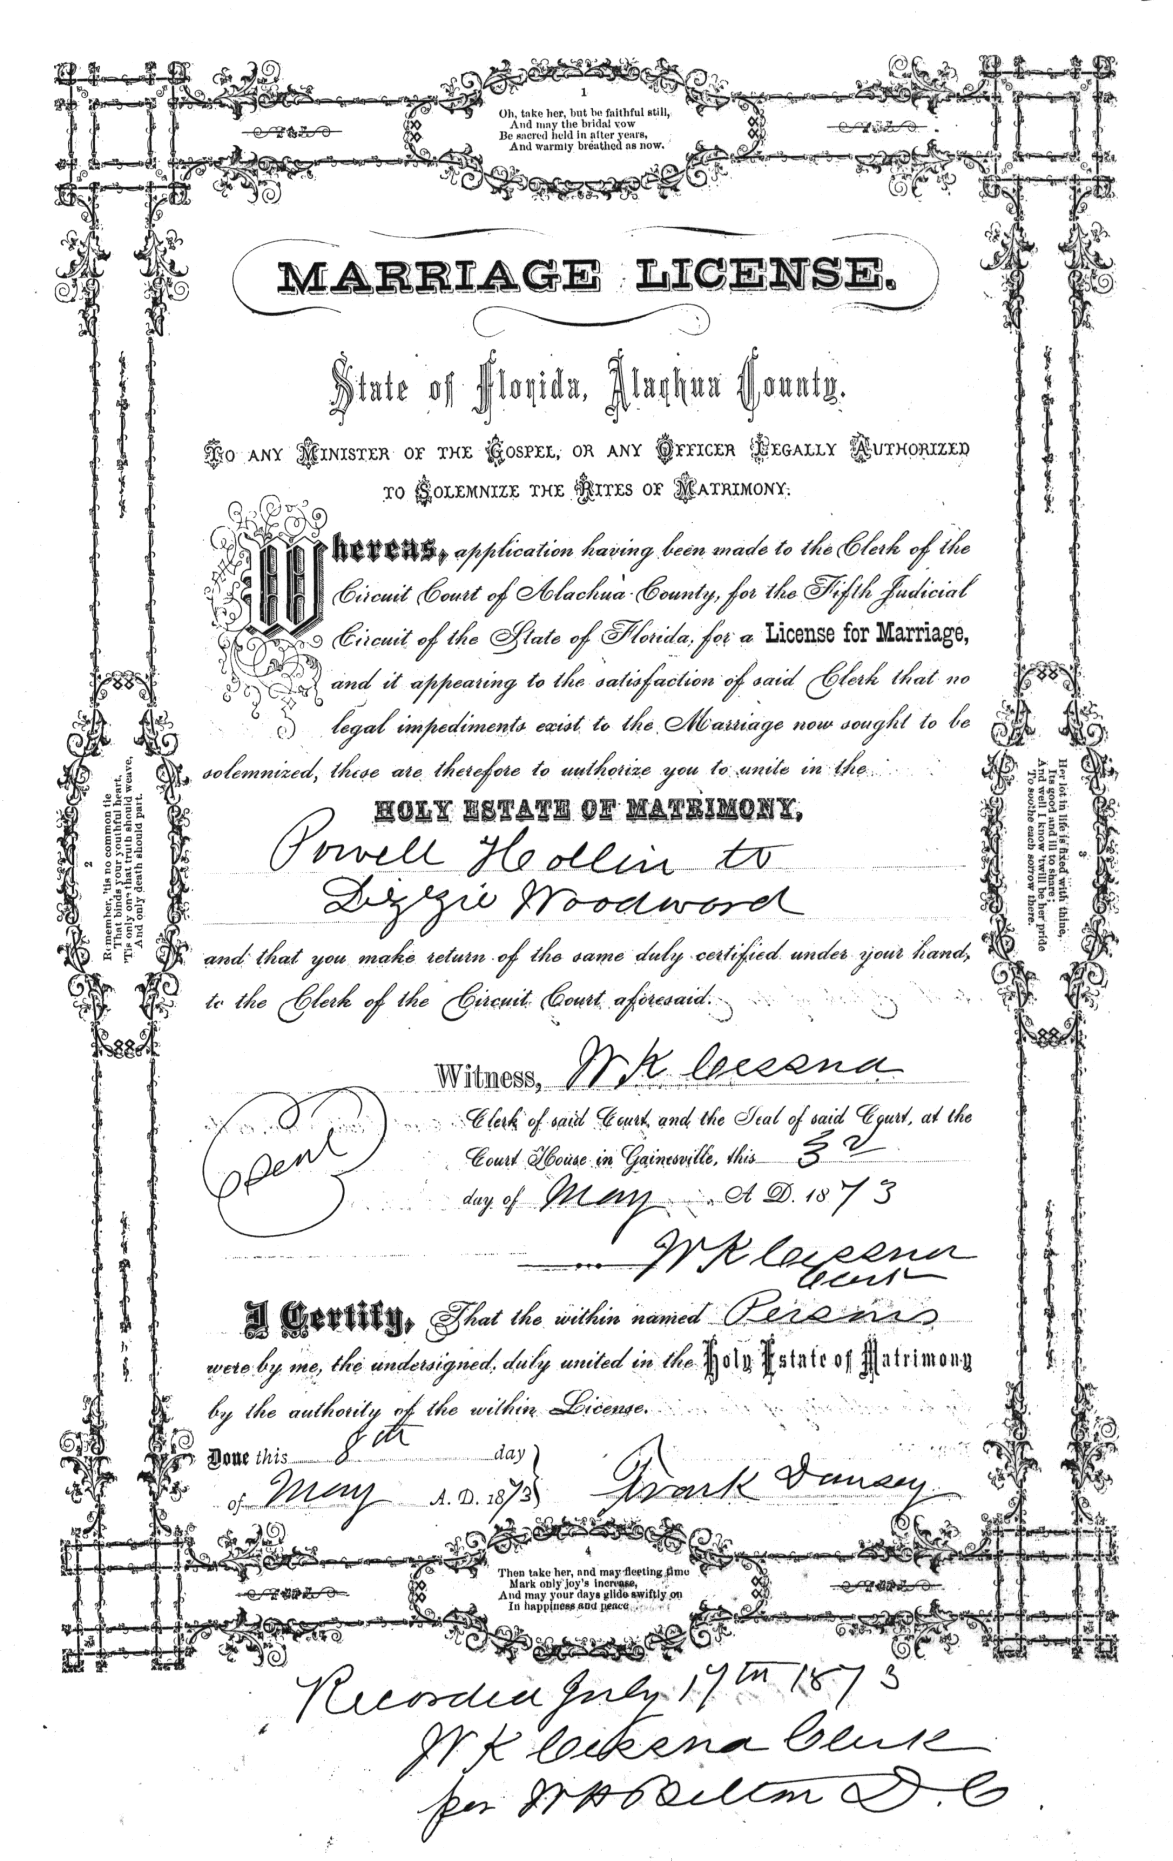 1
Oh, take her, but be faithful still,
And may the bridal vow
Be sacred held in after years,
And warmly breathed as now.
MARRIAGE LICENSE.
State of Florida, Alachua County.
TO ANY MINISTER OF THE GOSPEL, OR ANY OFFICER LEGALLY AUTHORIZED
TO SOLEMNIZE THE RITES OF MATRIMONY:
Whereas, application having been made to the Clerk of the
Circuit Court of Alachua County, for the Fifth Judicial
Circuit of the State of Florida, for a License for Marriage,
and it appearing to the satisfaction of said Clerk that no
legal impediments exist to the Marriage now sought to be
solemnized, these are therefore to authorize you to unite in the
HOLY ESTATE OF MATRIMONY,
Powell Hollin to
Lizzie Woodward
and that you make return of the same duly certified under your hand,
to the Clerk of the Circuit Court aforesaid.
2
Remember, 'tis no common tie
That binds your youthful heart,
'Tis only one that truth should weave,
And only death should part.
3
Her lot in life is fixed with thine,
Its good and ill to share;
And well I know 'twill be her pride
To soothe each sorrow there.
Witness, W K Cessna
Clerk of said Court, and the Seal of said Court, at the
Court House in Gainesville, this 3d
Seal
day of May A D. 1873
W K Cessna
Clerk
I Certify, That the within named Persons
were by me, the undersigned, duly united in the Holy Estate of Matrimony
by the authority of the within License.
Done this 8th day
of May A. D. 1873
Frank Dansey
4
Then take her, and may fleeting time
Mark only joy's increase,
And may your days glide swiftly on
In happiness and peace
Recorded July 17th 1873
W K Cessna Clerk
per W H Belton D. C.